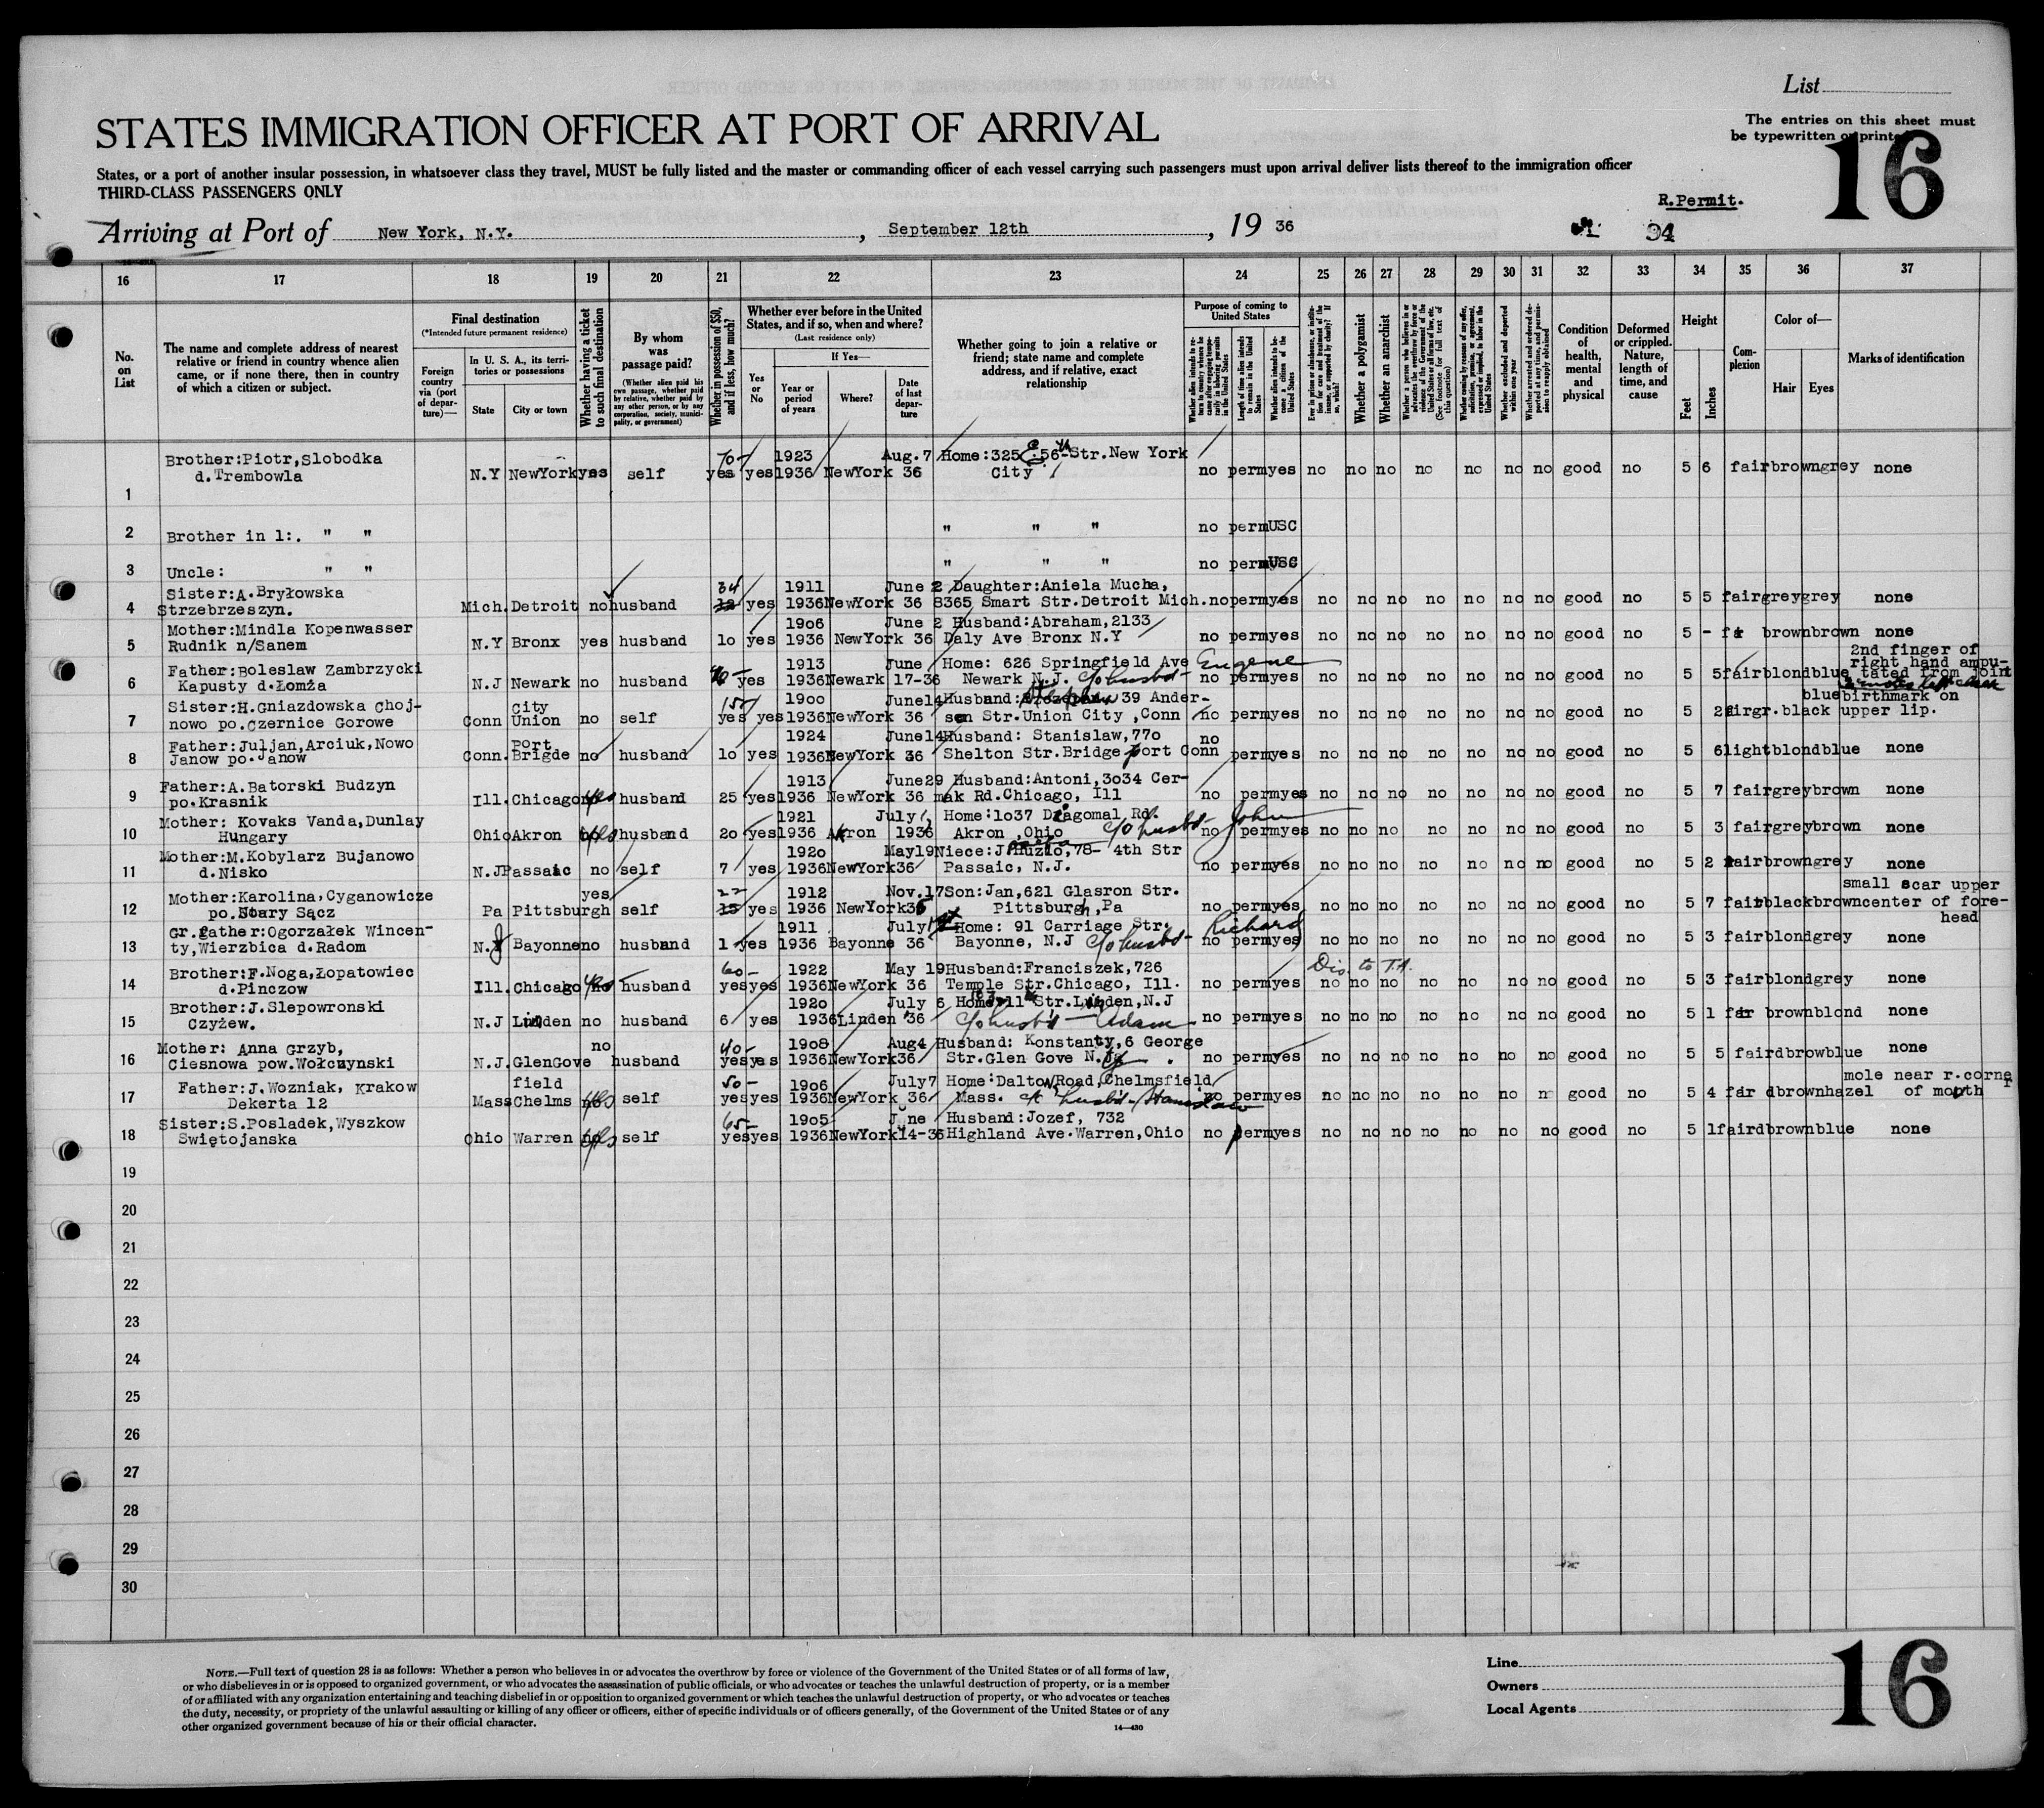 List
STATES IMMIGRATION OFFICER AT PORT OF ARRIVAL
The entries on this sheet must
be typewritten or printed
16
States, or a port of another insular possession, in whatsoever class they travel, MUST be fully listed and the master or commanding officer of each vessel carrying such passengers must upon arrival deliver lists thereof to the immigration officer
THIRD-CLASS PASSENGERS ONLY
R.Permit.
Arriving at Port of New York, N.Y. , September 12th , 19 36
94
16 17 18 19 20 21 22 23 24 25 26 27 28 29 30 31 32 33 34 35 36 37
No. on List
The name and complete address of nearest relative or friend in country whence alien came, or if none there, then in country of which a citizen or subject.
Final destination
(*Intended future permanent residence)
Foreign country via (port of departure)—
In U. S. A., its territories or possessions
State
City or town
Whether having a ticket to such final destination
By whom was passage paid?
(Whether alien paid his own passage, whether paid by relative, whether paid by any other person, or by any corporation, society, municipality, or government)
Whether in possession of $50, and if less, how much?
Whether ever before in the United States, and if so, when and where?
(Last residence only)
Yes or No
If Yes—
Year or period of years
Where?
Date of last departure
Whether going to join a relative or friend; state name and complete address, and if relative, exact relationship
Purpose of coming to United States
Whether alien intends to return to country whence he came after engaging temporarily in laboring pursuits in the United States
Length of time alien intends to remain in the United States
Whether alien intends to become a citizen of the United States
Ever in prison or almshouse, or institution for care and treatment of the insane, or supported by charity? If so, which?
Whether a polygamist
Whether an anarchist
Whether a person who believes in or advocates the overthrow by force or violence of the Government of the United States or all forms of law, etc. (See footnote for full text of this question)
Whether coming by reasons of any offer, solicitation, promise, or agreement, expressed or implied, to labor in the United States
Whether excluded and deported within one year
Whether arrested and ordered deported at any time, and permission to reapply obtained
Condition of health, mental and physical
Deformed or crippled. Nature, length of time, and cause
Height
Feet
Inches
Complexion
Color of—
Hair
Eyes
Marks of identification
Brother:Piotr,Slobodka 70- 1923 Aug.7 Home:325 E 56th Str.New York
1 d.Trembowla N.Y NewYork yes self yes yes 1936 NewYork 36 City no perm yes no no no no no no no good no 5 6 fair brown grey none
2 Brother in l:. " " " " " no perm USC
3 Uncle: " " " " " no perm USC
Sister:A.Bryłowska 34 1911 June 2 Daughter:Aniela Mucha,
4 Strzebrzeszyn. Mich. Detroit no husband yes 1936 NewYork 36 8365 Smart Str.Detroit Mich. no perm yes no no no no no no no good no 5 5 fair grey grey none
Mother:Mindla Kopenwasser 1906 June 2 Husband:Abraham,2133
5 Rudnik n/Sanem N.Y Bronx yes husband 10 yes 1936 NewYork 36 Daly Ave Bronx N.Y no perm yes no no no no no no no good no 5 - brown brown none
Father:Boleslaw Zambrzycki 1913 June Home: 626 Springfield Ave Eugene 2nd finger of right hand ampu-
6 Kapusty d.Łomża N.J Newark no husband yes 1936 Newark 17-36 Newark N.J. c/o husbd- no perm yes no no no no no no no good no 5 5 fair blond blue tated from joint
Sister:H.Gniazdowska Choj- City 15 1900 June14 Husband: Stephen 39 Ander- blue birthmark on
7 nowo po.Czernice Gorowe Conn Union no self yes yes 1936 NewYork 36 son Str.Union City ,Conn no perm yes no no no no no no no good no 5 2 fair gr.black upper lip.
Father:Juljan,Arciuk,Nowo port 1924 June14 Husband: Stanislaw,770 no
8 Janow po.Janow Conn. Brigde no husband 10 yes 1936 NewYork 36 Shelton Str.Bridge port Conn perm yes no no no no no no no good no 5 6 light blond blue none
Father:A.Batorski Budzyn 1913 June29 Husband:Antoni,3034 Cer-
9 po.Krasnik Ill. Chicago yes husband 25 yes 1936 NewYork 36 mak Rd.Chicago, Ill no perm yes no no no no no no no good no 5 7 fair grey brown none
Mother: Kovaks Vanda,Dunlay 1921 July Home:1037 Diagomal Rd. John
10 Hungary Ohio Akron yes husband 20 yes 1936 Akron 1936 Akron ,Ohio c/o husbd- no perm yes no no no no no no no good no 5 3 fair grey brown none
Mother:M.Kobylarz Bujanowo 1920 May19 Niece:J. 78- 4th Str
11 d.Nisko N.J Passaic no self 7 yes 1936 NewYork 36 Passaic, N.J. no perm yes no no no no no no no good no 5 2 fair brown grey none
Mother:Karolina,Cyganowicze yes 22 1912 Nov.17 Son:Jan,621 Glasron Str. small scar upper
12 po.Stary Sącz Pa Pittsburgh self yes 1936 NewYork 35 Pittsburgh,Pa no perm yes no no no no no no no good no 5 7 fair black brown center of fore-
head
Gr.father:Ogorzałek Wincen- 1911 July Home: 91 Carriage Str. Richard
13 ty,Wierzbica d.Radom N.J Bayonne no husband 1 yes 1936 Bayonne 36 Bayonne, N.J c/o husbd- no perm yes no no no no no no no good no 5 3 fair blond grey none
Brother:F.Noga,Łopatowiec 60- 1922 May 19 Husband:Franciszek,726 Dis. to T.A.
14 d.Pinczow Ill. Chicago yes husband yes yes 1936 NewYork 36 Temple Str.Chicago, Ill. no perm yes no no no no no no no good no 5 3 fair blond grey none
Brother:J.Slepowronski 1920 July 6 Home: 11 Str.Linden,N.J
15 Czyżew. N.J Linden no husband 6 yes 1936 Linden 36 c/o husb'd - Adam no perm yes no no no no no no no good no 5 1 fair brown blond none
Mother: Anna Grzyb, no 40- 1908 Aug4 Husband: Konstanty,6 George
16 Ciesnowa pow.Wołczynski N.J. GlenGove husband yes yes 1936 NewYork 36 Str.Glen Gove no perm yes no no no no no no no good no 5 5 fair dbrow blue none
Father:J.Wozniak, Krakow field 50- 1906 July7 Home:Dalton Road,Chelmsfield mole near r.corner
17 Dekerta 12 Mass Chelms yes self yes yes 1936 NewYork 36 Mass. c/o husbd- Stanislaw no perm yes no no no no no no n good no 5 4 fair dbrown hazel of mouth
Sister:S.Posladek,Wyszkow 65- 1905 June Husband:Jozef, 732
18 Swiętojanska Ohio Warren yes self yes yes 1936 NewYork 14-36 Highland Ave.Warren,Ohio no perm yes no no no no no no no good no 5 1 fair dbrown blue none
19
20
21
22
23
24
25
26
27
28
29
30
NOTE.—Full text of question 28 is as follows: Whether a person who believes in or advocates the overthrow by force or violence of the Government of the United States or of all forms of law,
or who disbelieves in or is opposed to organized government, or who advocates the assassination of public officials, or who advocates or teaches the unlawful destruction of property, or is a member
of or affiliated with any organization entertaining and teaching disbelief in or opposition to organized government or which teaches the unlawful destruction of property, or who advocates or teaches
the duty, necessity, or propriety of the unlawful assaulting or killing of any officer or officers, either of specific individuals or of officers generally, of the Government of the United States or of any
other organized government because of his or their official character.
14—430
Line
Owners
Local Agents
16